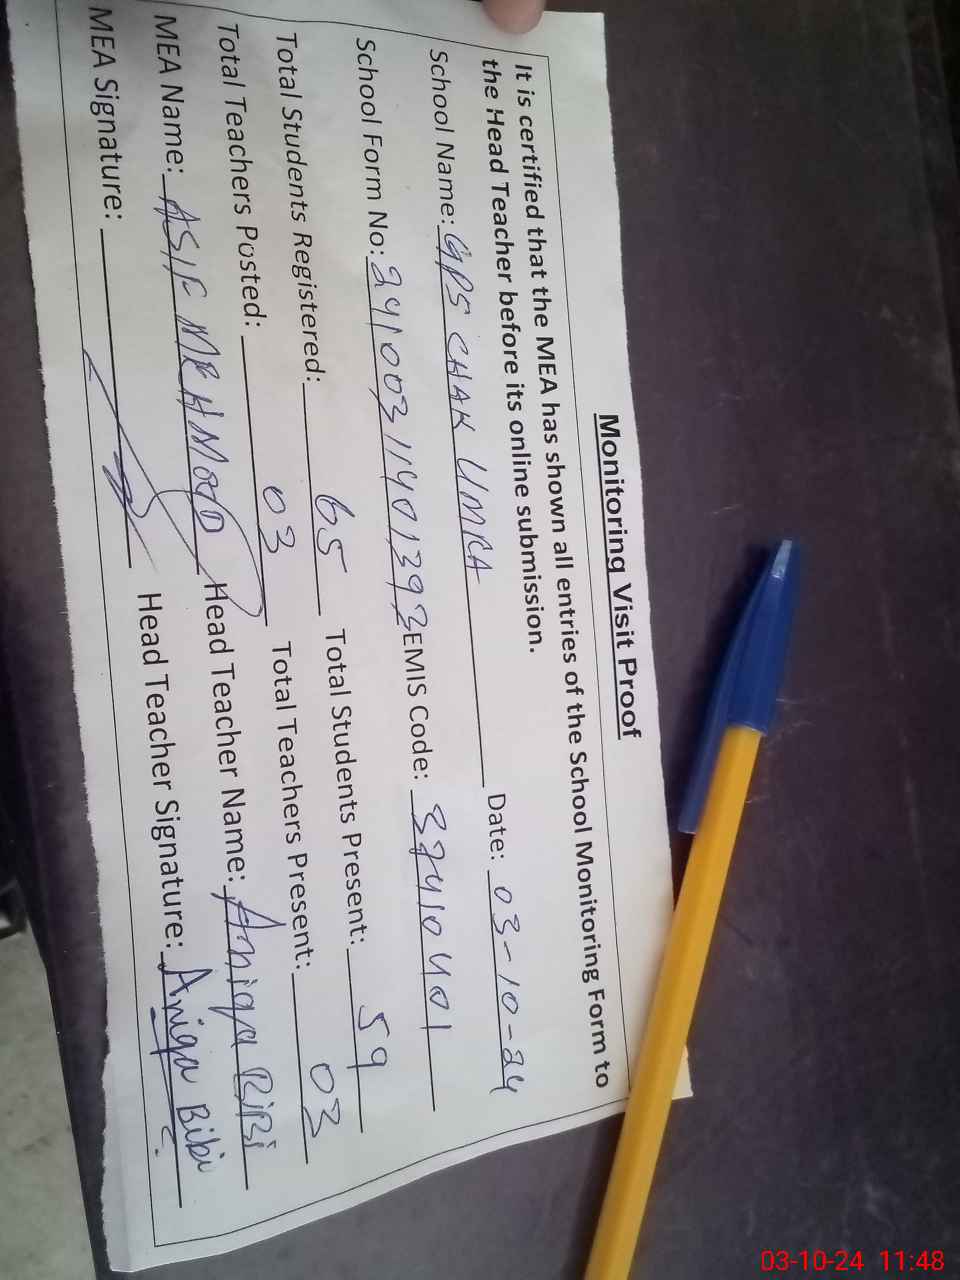 Monitoring Visit Proof
It is certified that the MEA has shown all entries of the School Monitoring Form to
the Head Teacher before its online submission.
School Name: GPS CHAK UMRA Date: 03-10-24
School Form No: 24100311401393 EMIS Code: 37410401
Total Students Registered: 65 Total Students Present: 59
Total Teachers Posted: 03 Total Teachers Present: 03
MEA Name: ASIF MEHMOOD Head Teacher Name: Aniqa BiBi
MEA Signature: Head Teacher Signature: Aniqa Bibi
03-10-24 11:48